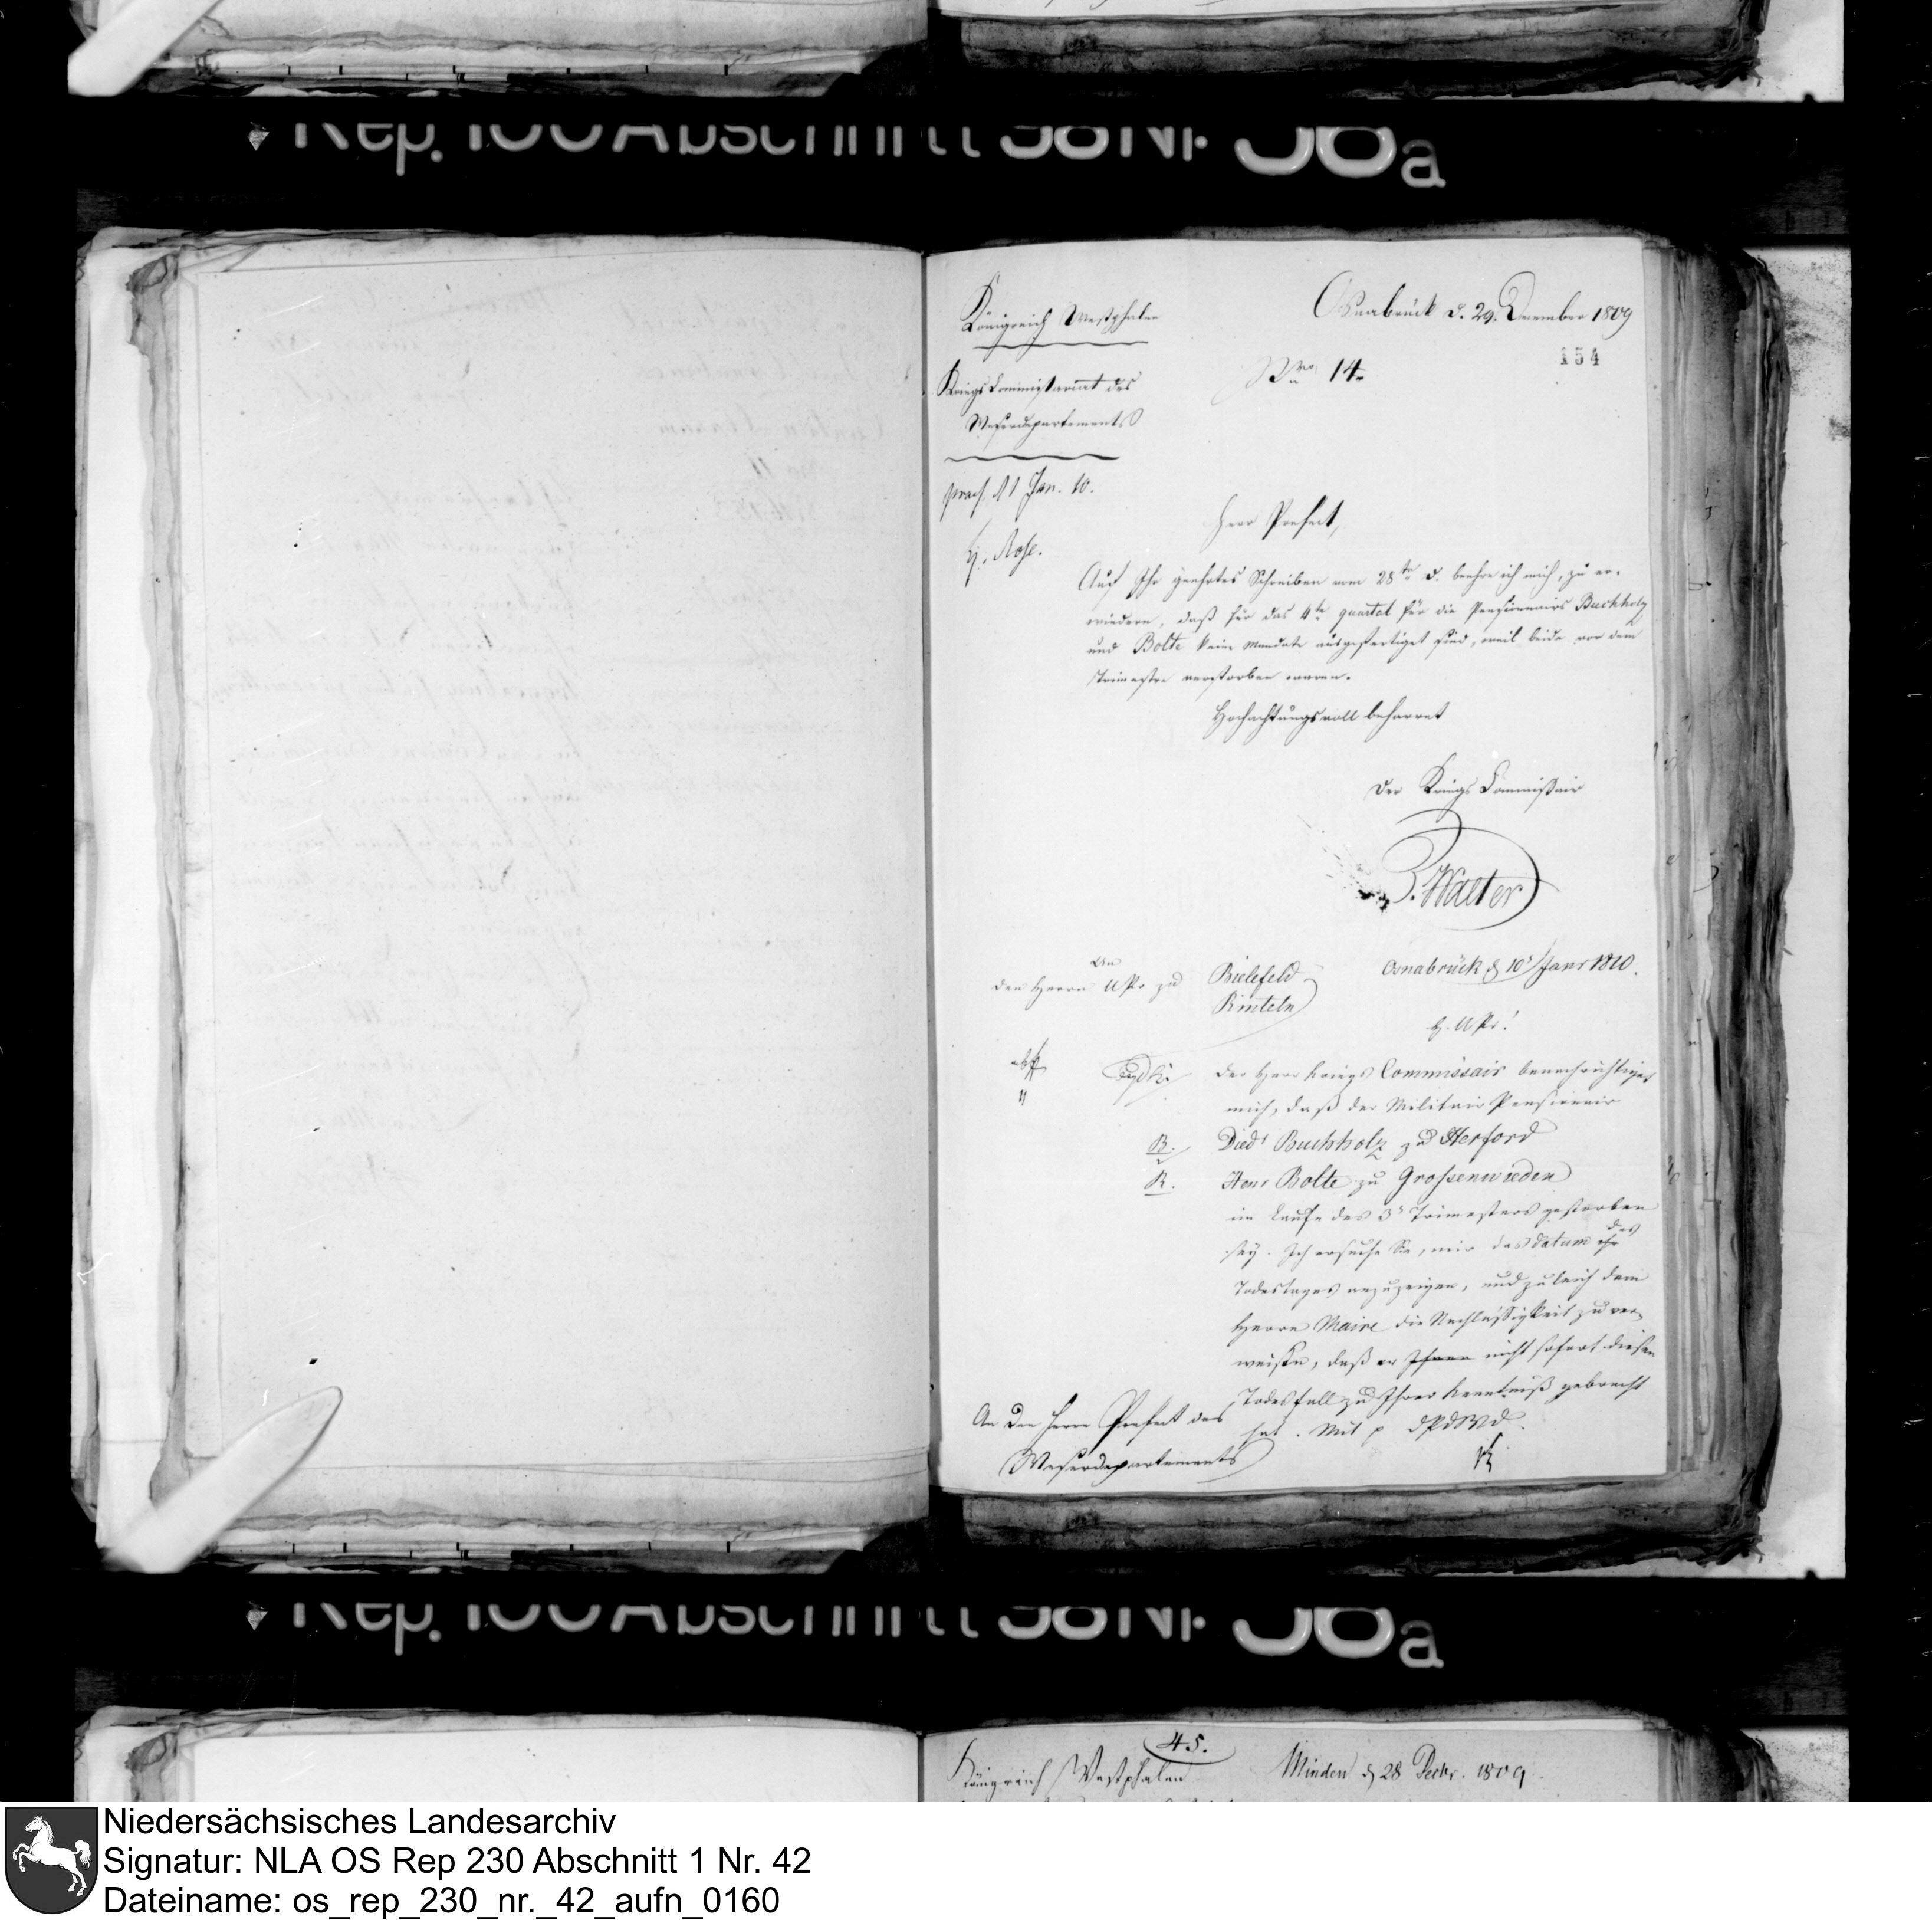 Rep. 100 Abschnitt 38 Nr. 38a
Königreich Westphalen
Osnabrück d. 29. December 1809
154
KriegsCommissariat des
Weserdepartements
Nro. 14.
praes. d 1 Jan. 10.
H. Rose.
Herr Prefect,
Auf Ihr geehrtes Schreiben vom 28ten d. beehre ich mich, zu er-
wiedern, daß für das 4te quartal für die Pensionnairs Buchholz
und Bolte keine Mandate ausgefertiget sind, weil beide vor dem
Trimestre verstorben waren.
Hochachtungsvoll beharret
Der Kriegs Commißair
Walter
An
den Herrn UPr zu Bielefeld
Rinteln
Osnabrück d 10t Janr 1810.
H. UPr!
Der Herr Kriegs Commissair benachrichtiget
mich, daß der Militair Pensionair
B. Died. Buchholz zu Herford
R. Henr Bolte zu Grossenwieden
im Laufe des 3t Trimesters gestorben
sey. Ich ersuche Sie, mir das Datum des
Todestages anzuzeigen, und zuleich dem
Herrn Maire die Nachlässigkeit zu ver-
weisen, daß er Ihnen nicht sofort diesen
Todesfall zu Ihrer Kenntniß gebracht
hat. Mit p dPdWD.
An den Herrn Prefect des
Weserdepartements
Rep. 100 Abschnitt 38 Nr. 38a
45.
Königreich Westphalen
Minden d 28 Decbr. 1809
Niedersächsisches Landesarchiv
Signatur: NLA OS Rep 230 Abschnitt 1 Nr. 42
Dateiname: os_rep_230_nr._42_aufn_0160